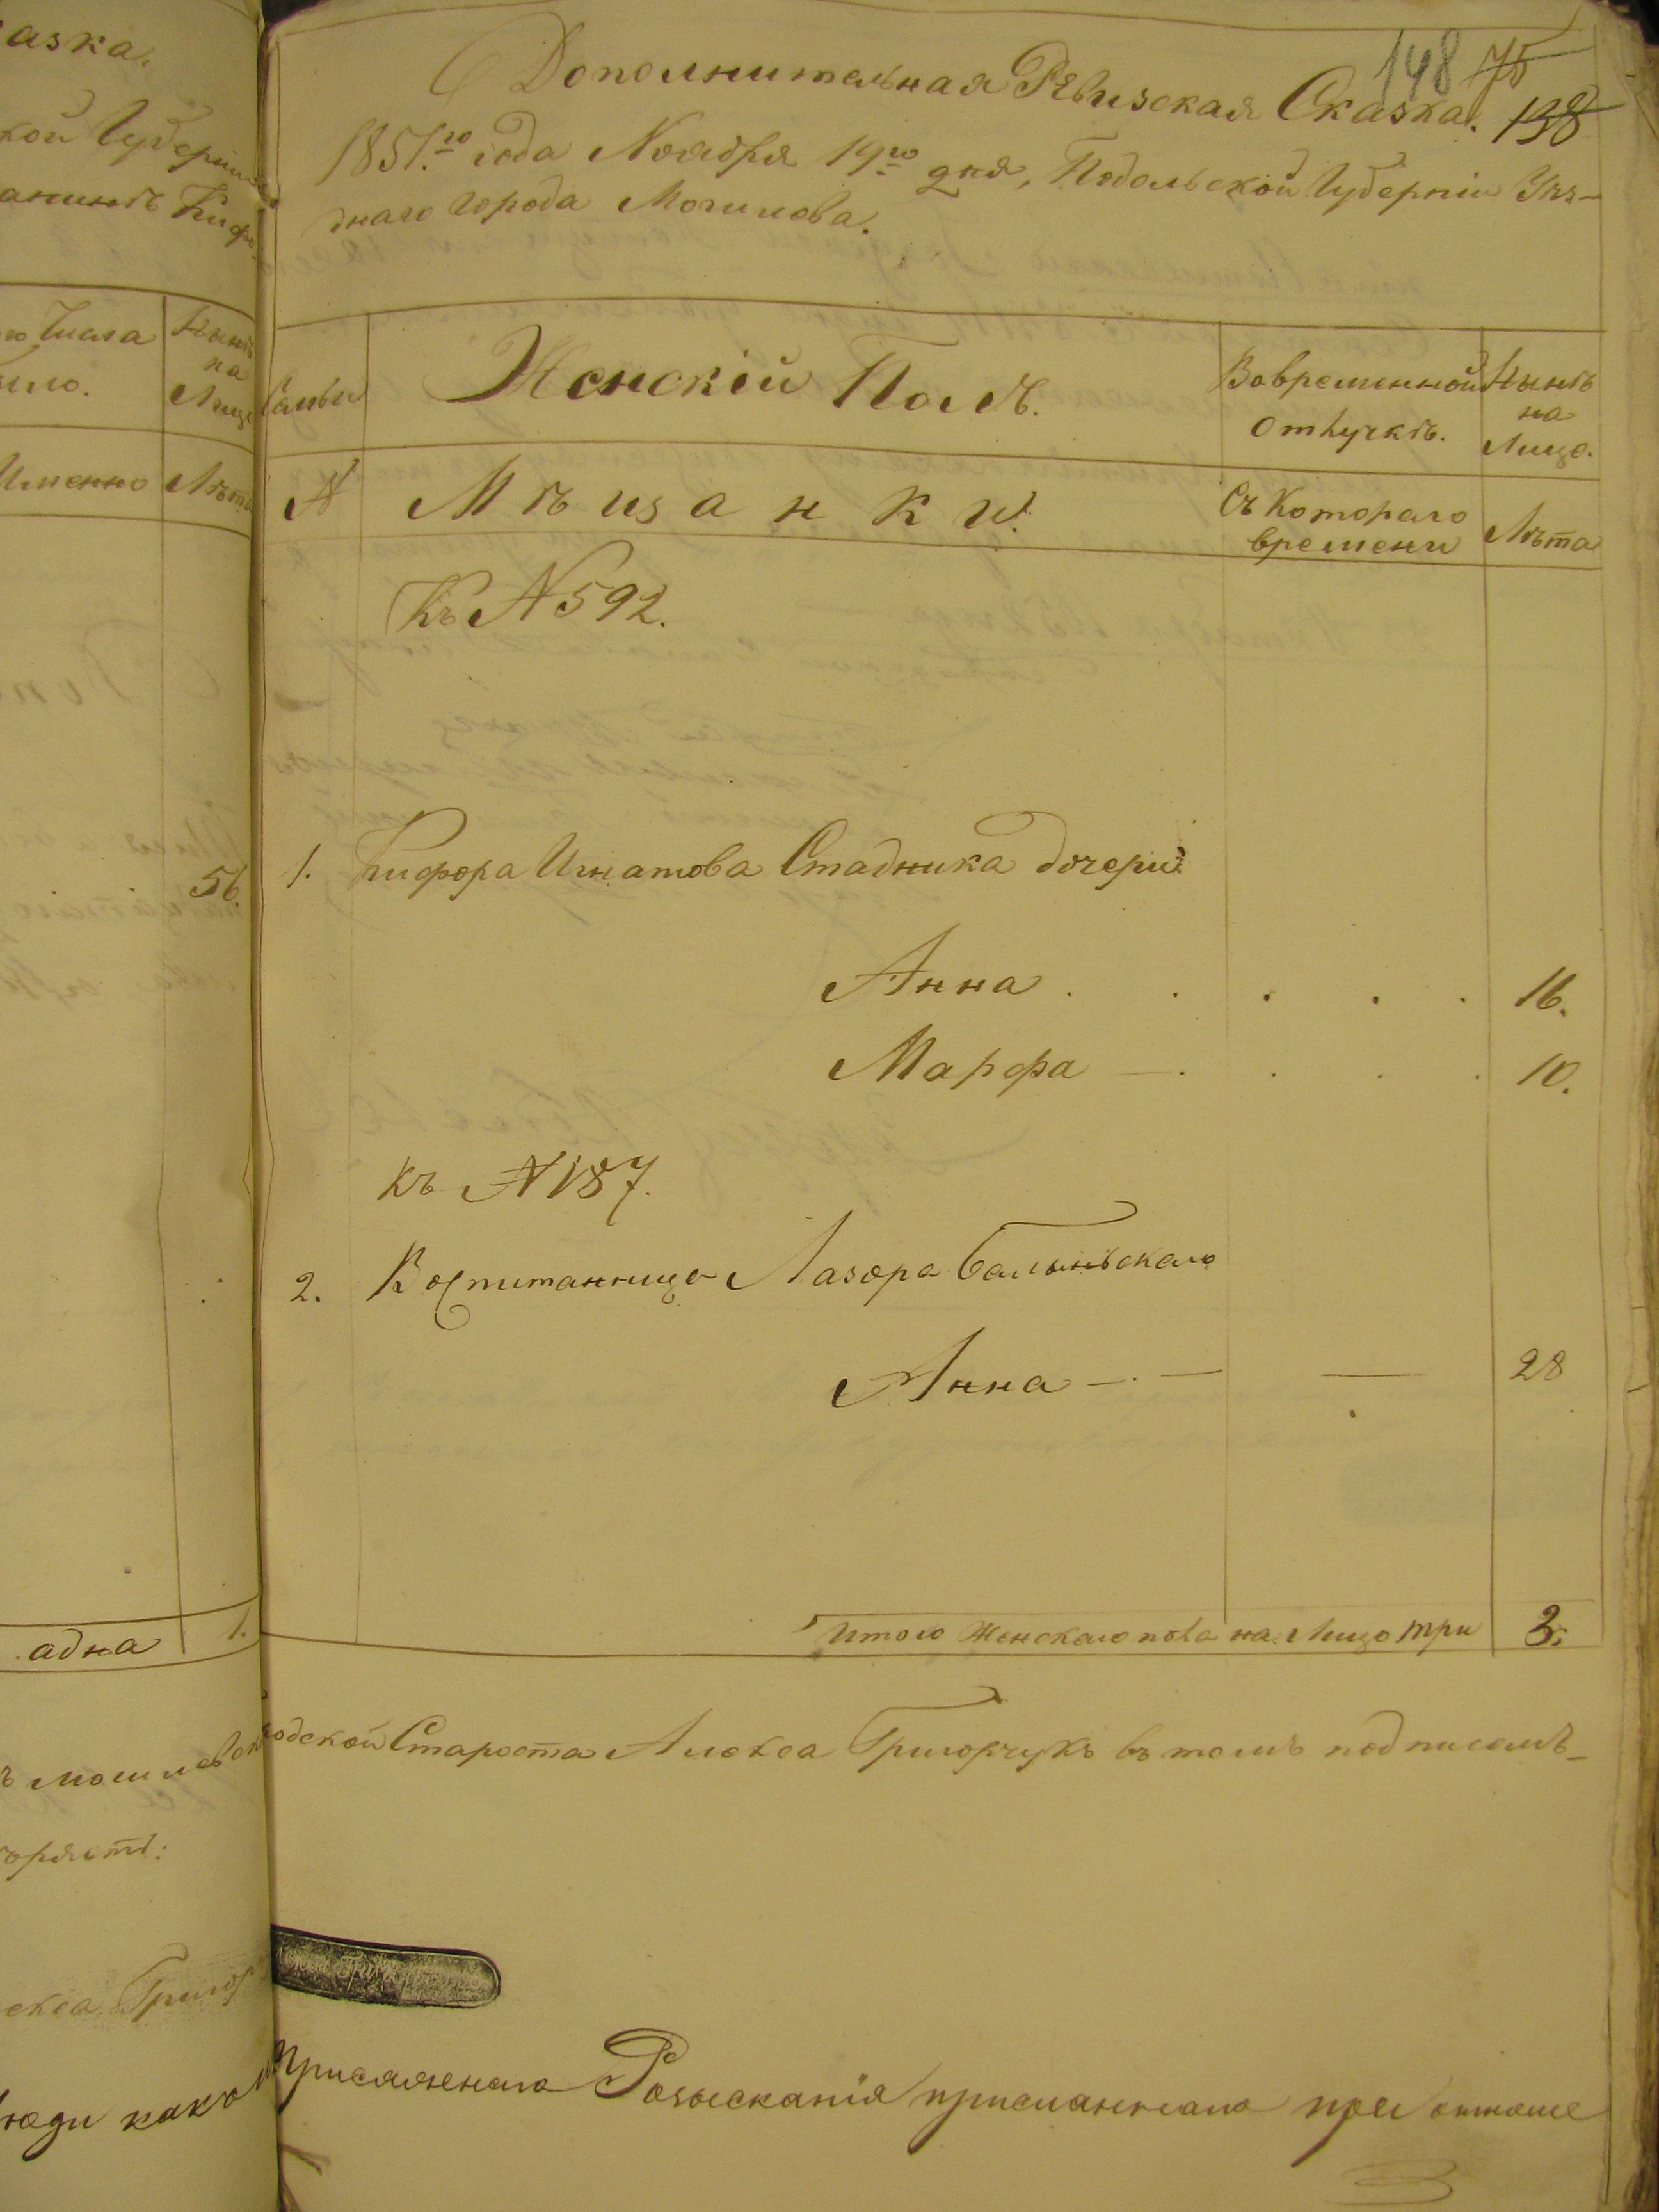 аска.
кой Губерніи
анинъ Кифо-
го числа
Нынѣ
на
Лице
было.
Именно
Лѣта
56.
адна
1.
ъ Могилев
ворястъ:
екса Григор
люди како
148 75
138
Дополнительная Рѣвизская Сказка.
1851.го года Ноября 19го дня, Подольской Губерніи Уѣз-
днаго города Могилова.
Семьи
Женскій Полъ.
Вовременной
отлучкѣ.
Нынѣ
на
Лицо.
№
Мѣщанки.
Съ Котораго
времени
Лѣта
Къ № 592.
1. Кифора Игнатова Стадника дочери
Анна . . . . . 16.
Марфа — . . . . 10.
Къ № 187.
2. Воспитанница Лазора Балынскаго
Анна — . — — 28
Итого Женскаго пола на Лицо три 3.
годской Староста Алекса Григорчукъ въ томъ подписалъ_
присяженаго Розысканія присланнаго при отноше